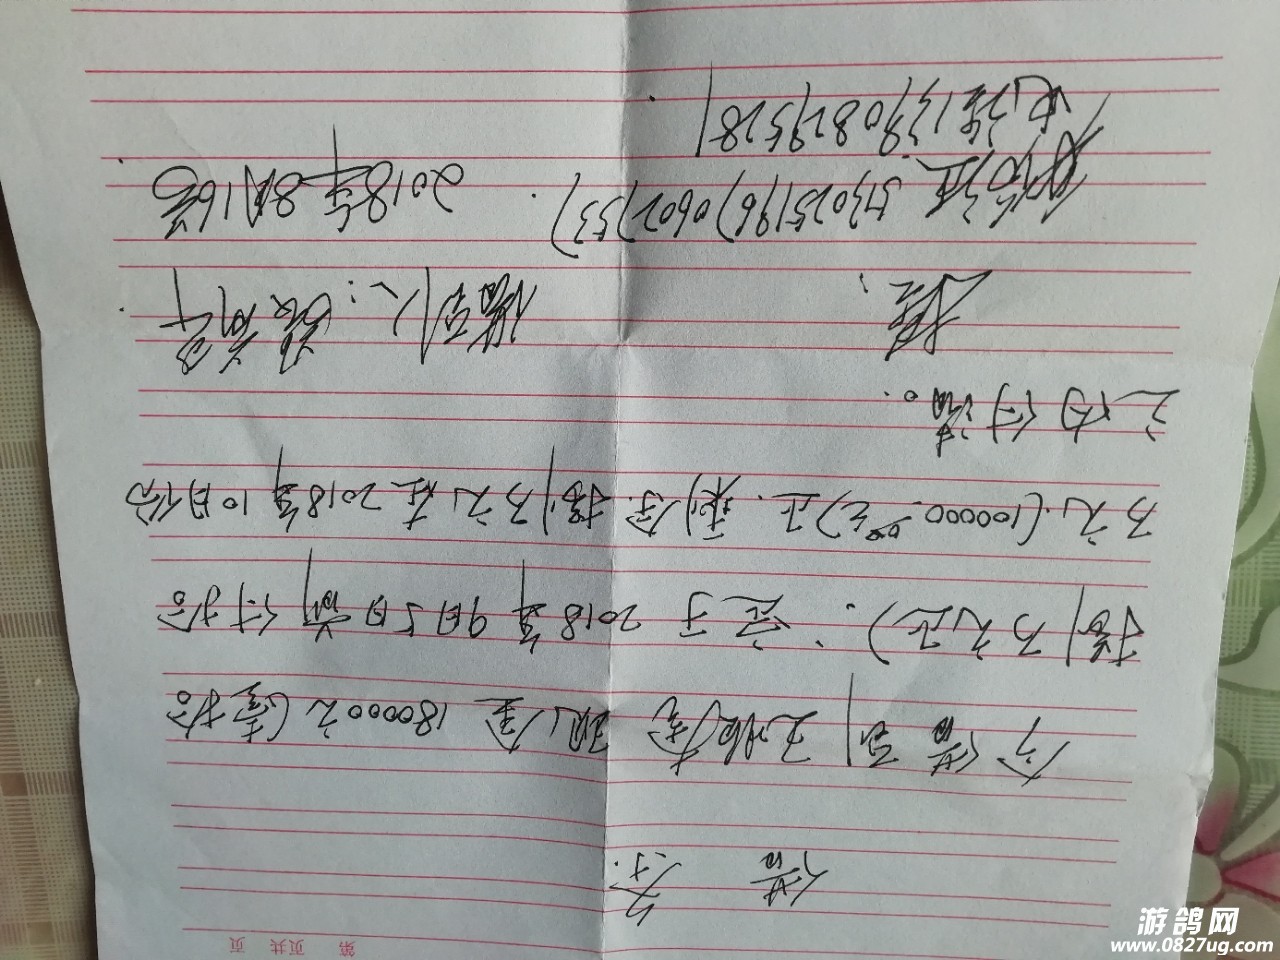 第 页共 页
借 条
今借到 现金 180000元(壹拾
捌万元正)；定于 2018年9月5日前付拾
万元.(100000.00元)正. 剩余.捌万元在2018年10月份
之内付清。
借到人：
2018年8月16号
电话13908295281
游鸽网
www.0827ug.com